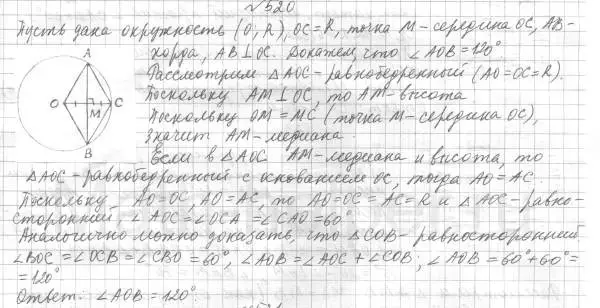 №520
Пусть дана окружность (O; R), OC=R, точка M-середина OC, AB-
хорда, AB⊥OC. Докажем, что ∠AOB=120°
Рассмотрим △AOC-равнобедренный (AO=OC=R).
Поскольку AM⊥OC, то AM-высота
Поскольку OM=MC (точка M-середина OC),
значит AM-медиана.
Если в △AOC AM-медиана и высота, то
△AOC-равнобедренный с основанием OC, тогда AO=AC
Поскольку AO=OC, AO=AC, то AO=OC=AC=R и △AOC-равно-
сторонний, ∠AOC=∠OCA=∠CAO=60°.
Аналогично можно доказать, что △COB-равносторонний
∠BOC=∠OCB=∠CBO=60°, ∠AOB=∠AOC+∠COB; ∠AOB=60°+60°=
=120°
Ответ: ∠AOB=120°
A
O
M
C
B